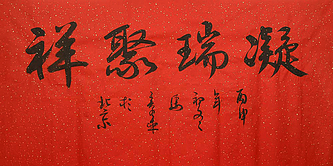 凝瑞聚祥
丙申
年
初夏
於
北京